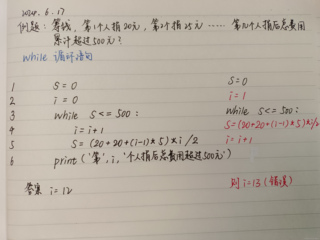 2024.6.17
例题:筹钱,第1个人捐20元,第2个人捐25元……第几个人捐后总费用
累计超过500元?
while 循环语句
1 S=0 S=0
2 i=0 i=1
3 while S<=500: while S<=500:
4 i=i+1 S=(20+20+(i-1)*5)*i/2
5 S=(20+20+(i-1)*5)*i/2 i=i+1
6 print('第',i,'个人捐后总费用超过500元')
答案 i=12 则i=13(错误)